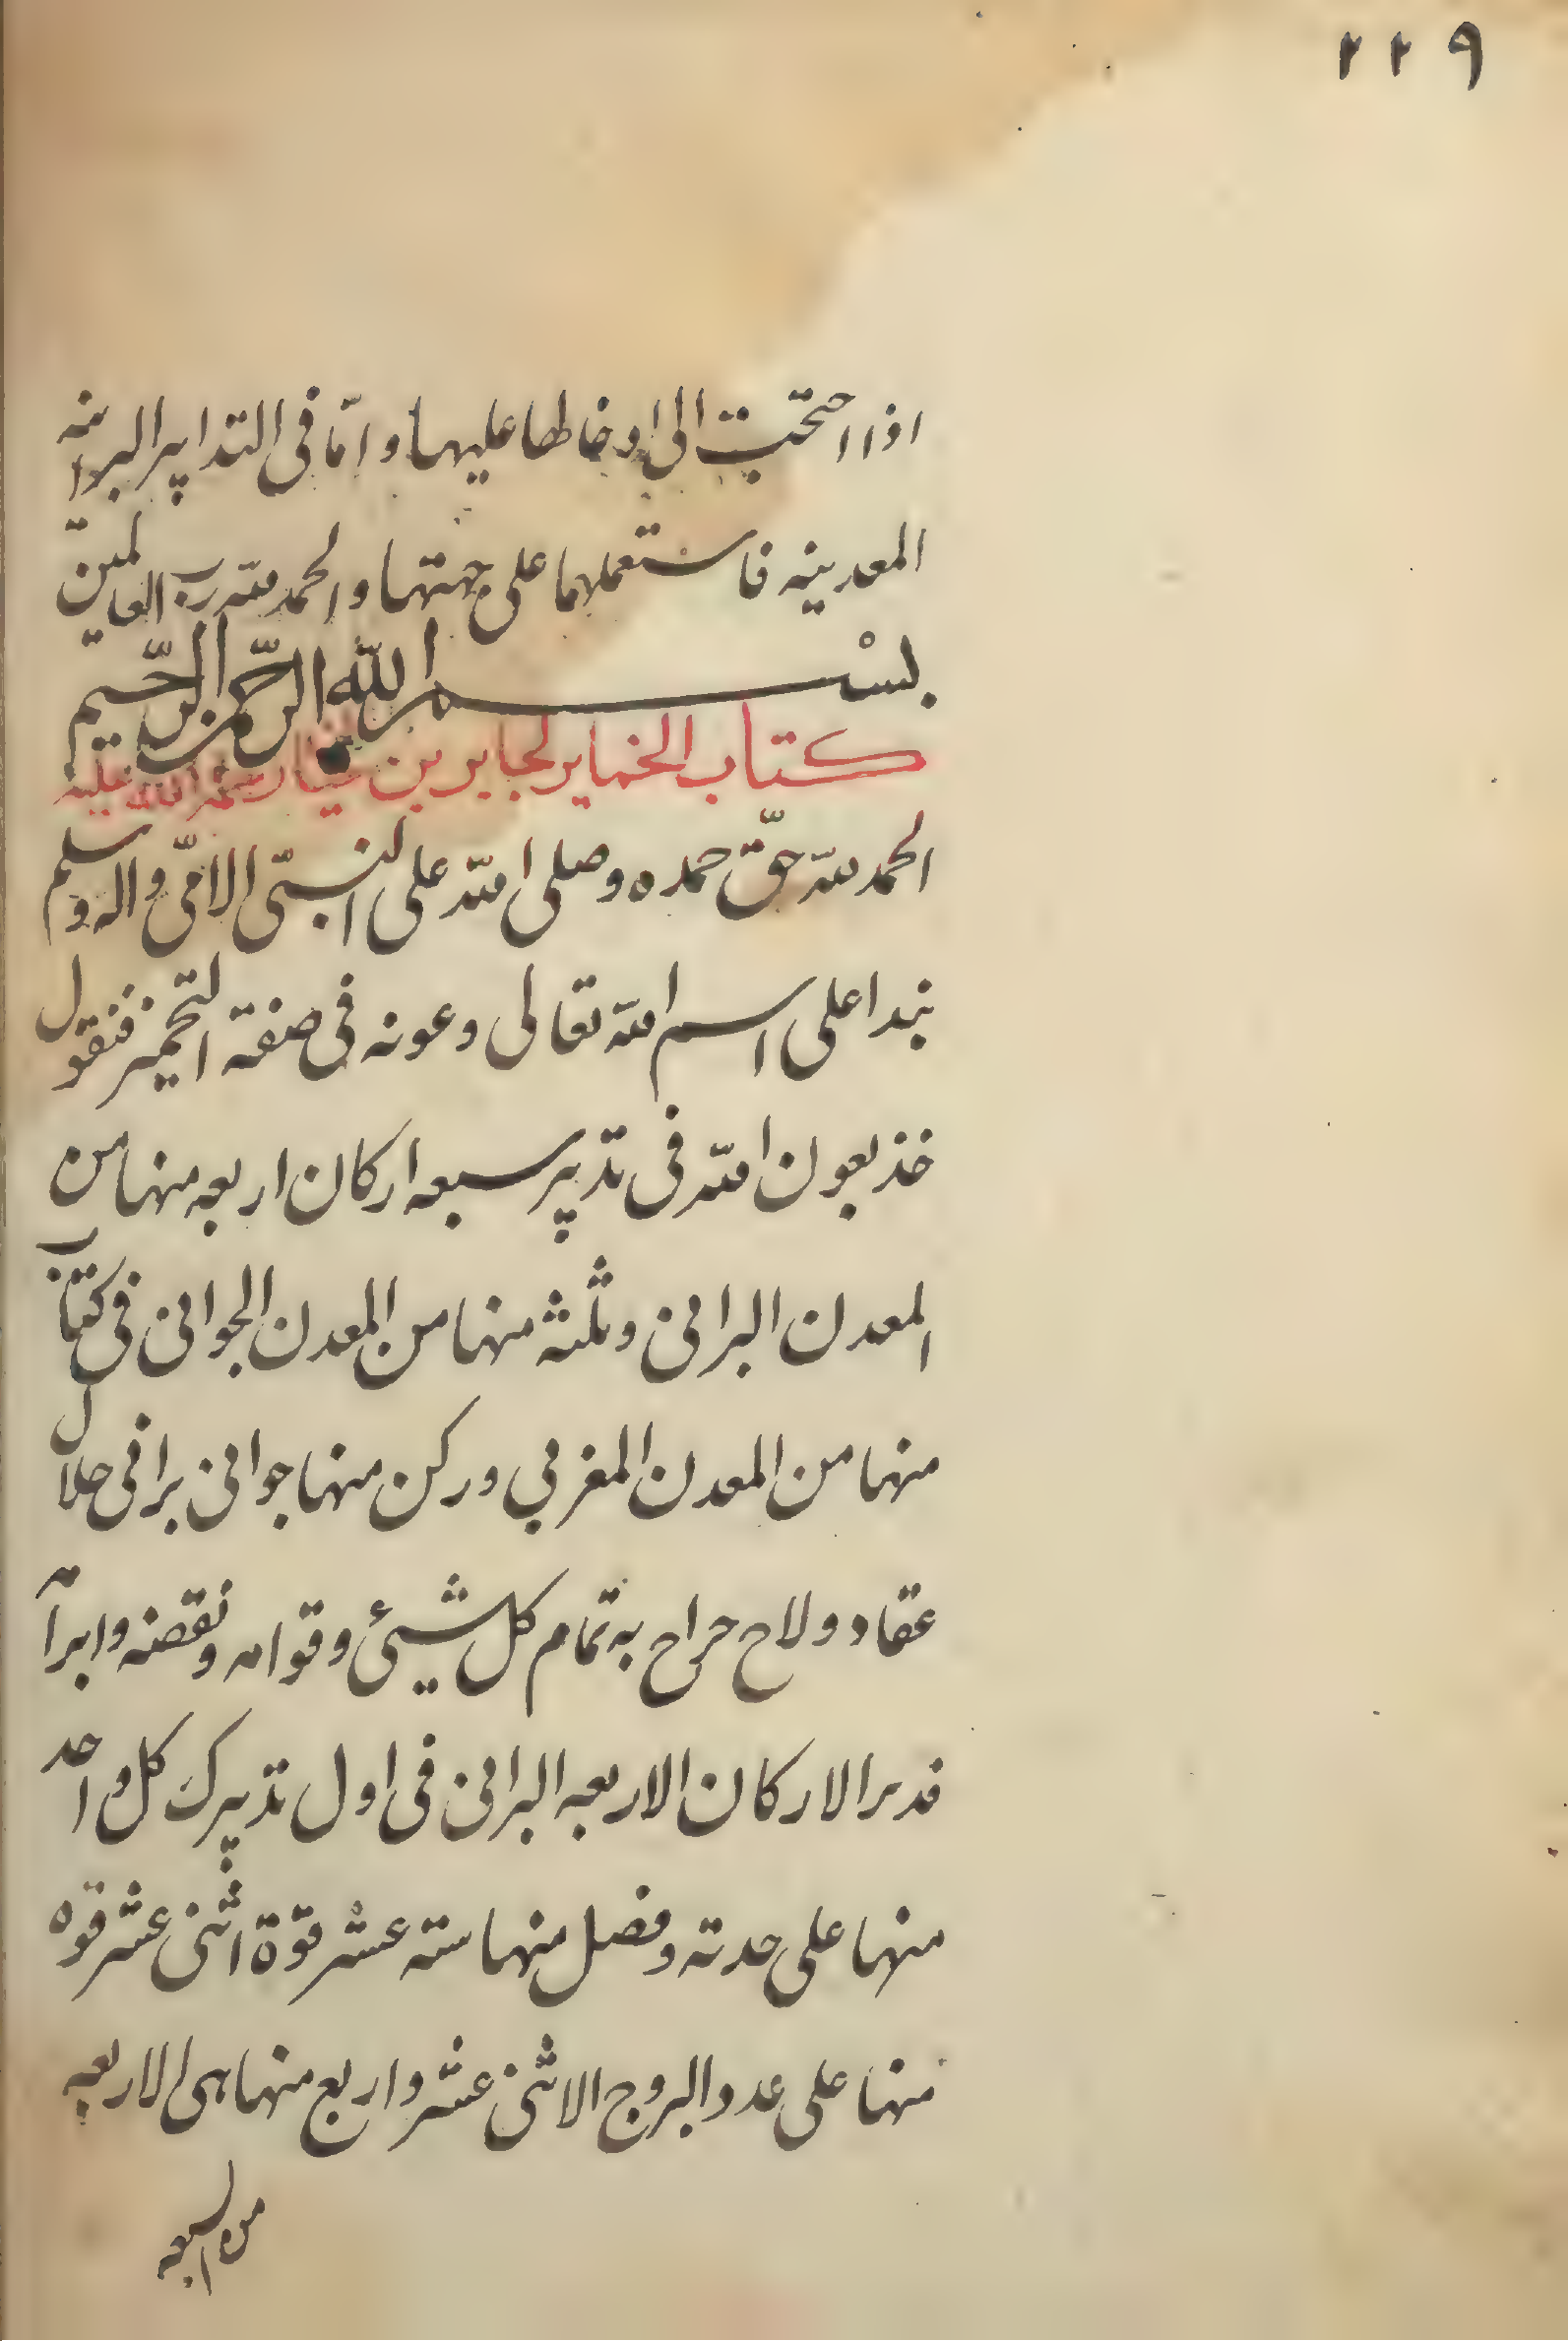 ٢٢٩
اذا احتجت الى ادخالها عليها وامّا فى التدابير البرانيه
المعدنيه فاستعملاها على جهتها والحمد لله رب العالمين
بسْم الله الرّحمن الرّحيم
كتاب الخماير لجابر بن حيان رحمة الله عليه
الحمد لله حقّ حمده وصلى الله على النبىّ الامىّ واله وسلم
نبدا على اسم الله تعالى وعونه فى صفة التخمير فنقول
خذ بعون الله فى تدبير سبعه اركان اربعه منها من
المعدن البرانى وثلثه منها من المعدن الجوانى فى كتاب
منها من المعدن المغربي وركن منها جوانى برانى حلال
عقاد ولاح حراح به تمام كل شيئ وقوامه ونقصه وابرآته
فدبر الاركان الاربعه البرانى فى اول تدبيرك كل واحد
منها على حدته وفصل منها سته عشر قوّة اثنى عشر قوه
منها على عدد البروج الاثنى عشر واربع منها هى الاربعه
من السبعه